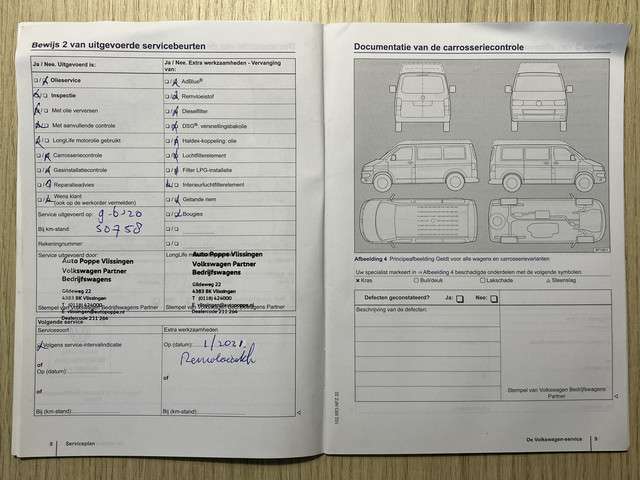 Bewijs 2 van uitgevoerde servicebeurten
Ja / Nee. Uitgevoerd is:
Ja / Nee. Extra werkzaamheden - Vervanging van:
Olieservice
AdBlue®
Inspectie
Remvloeistof
Met olie verversen
Dieselfilter
Met aanvullende controle
DSG®: versnellingsbakolie
LongLife motorolie gebruikt
Haldex-koppeling: olie
Carrosseriecontrole
Luchtfilterelement
Gasinstallatiecontrole
Filter LPG-installatie
Reparatieadvies
Interieurluchtfilterelement
Wens klant
(ook op de werkorder vermelden)
Getande riem
Service uitgevoerd op: 9-6-2020
Bougies
Bij km-stand: 50758
Rekeningnummer:
Service uitgevoerd door:
Auto Poppe Vlissingen
Volkswagen Partner
Bedrijfswagens
Gildeweg 22
4383 BK Vlissingen
T (0118) 424000
E vlissingen@autopoppe.nl
Dealercode 211 264
Auto Poppe Vlissingen
Volkswagen Partner
Bedrijfswagens
Gildeweg 22
4383 BK Vlissingen
T (0118) 424000
E vlissingen@autopoppe.nl
Dealercode 211 264
Volgende service
Servicesoort
Extra werkzaamheden
Volgens service-intervalindicatie
Op (datum): 1/2021
of
Op (datum)
of
of
Bij (km-stand)
Bij (km-stand)
8 Serviceplan
Documentatie van de carrosseriecontrole
Afbeelding 4 Principeafbeelding Geldt voor alle wagens en carrosserievarianten
Uw specialist markeert in ⇒ Afbeelding 4 beschadigde onderdelen met de volgende symbolen.
× Kras □ Buil/deuk ○ Lakschade △ Steenslag
Defecten geconstateerd? Ja: Nee:
Beschrijving van de defecten:
Stempel van Volkswagen Bedrijfswagens
Partner
De Volkswagen-service 9